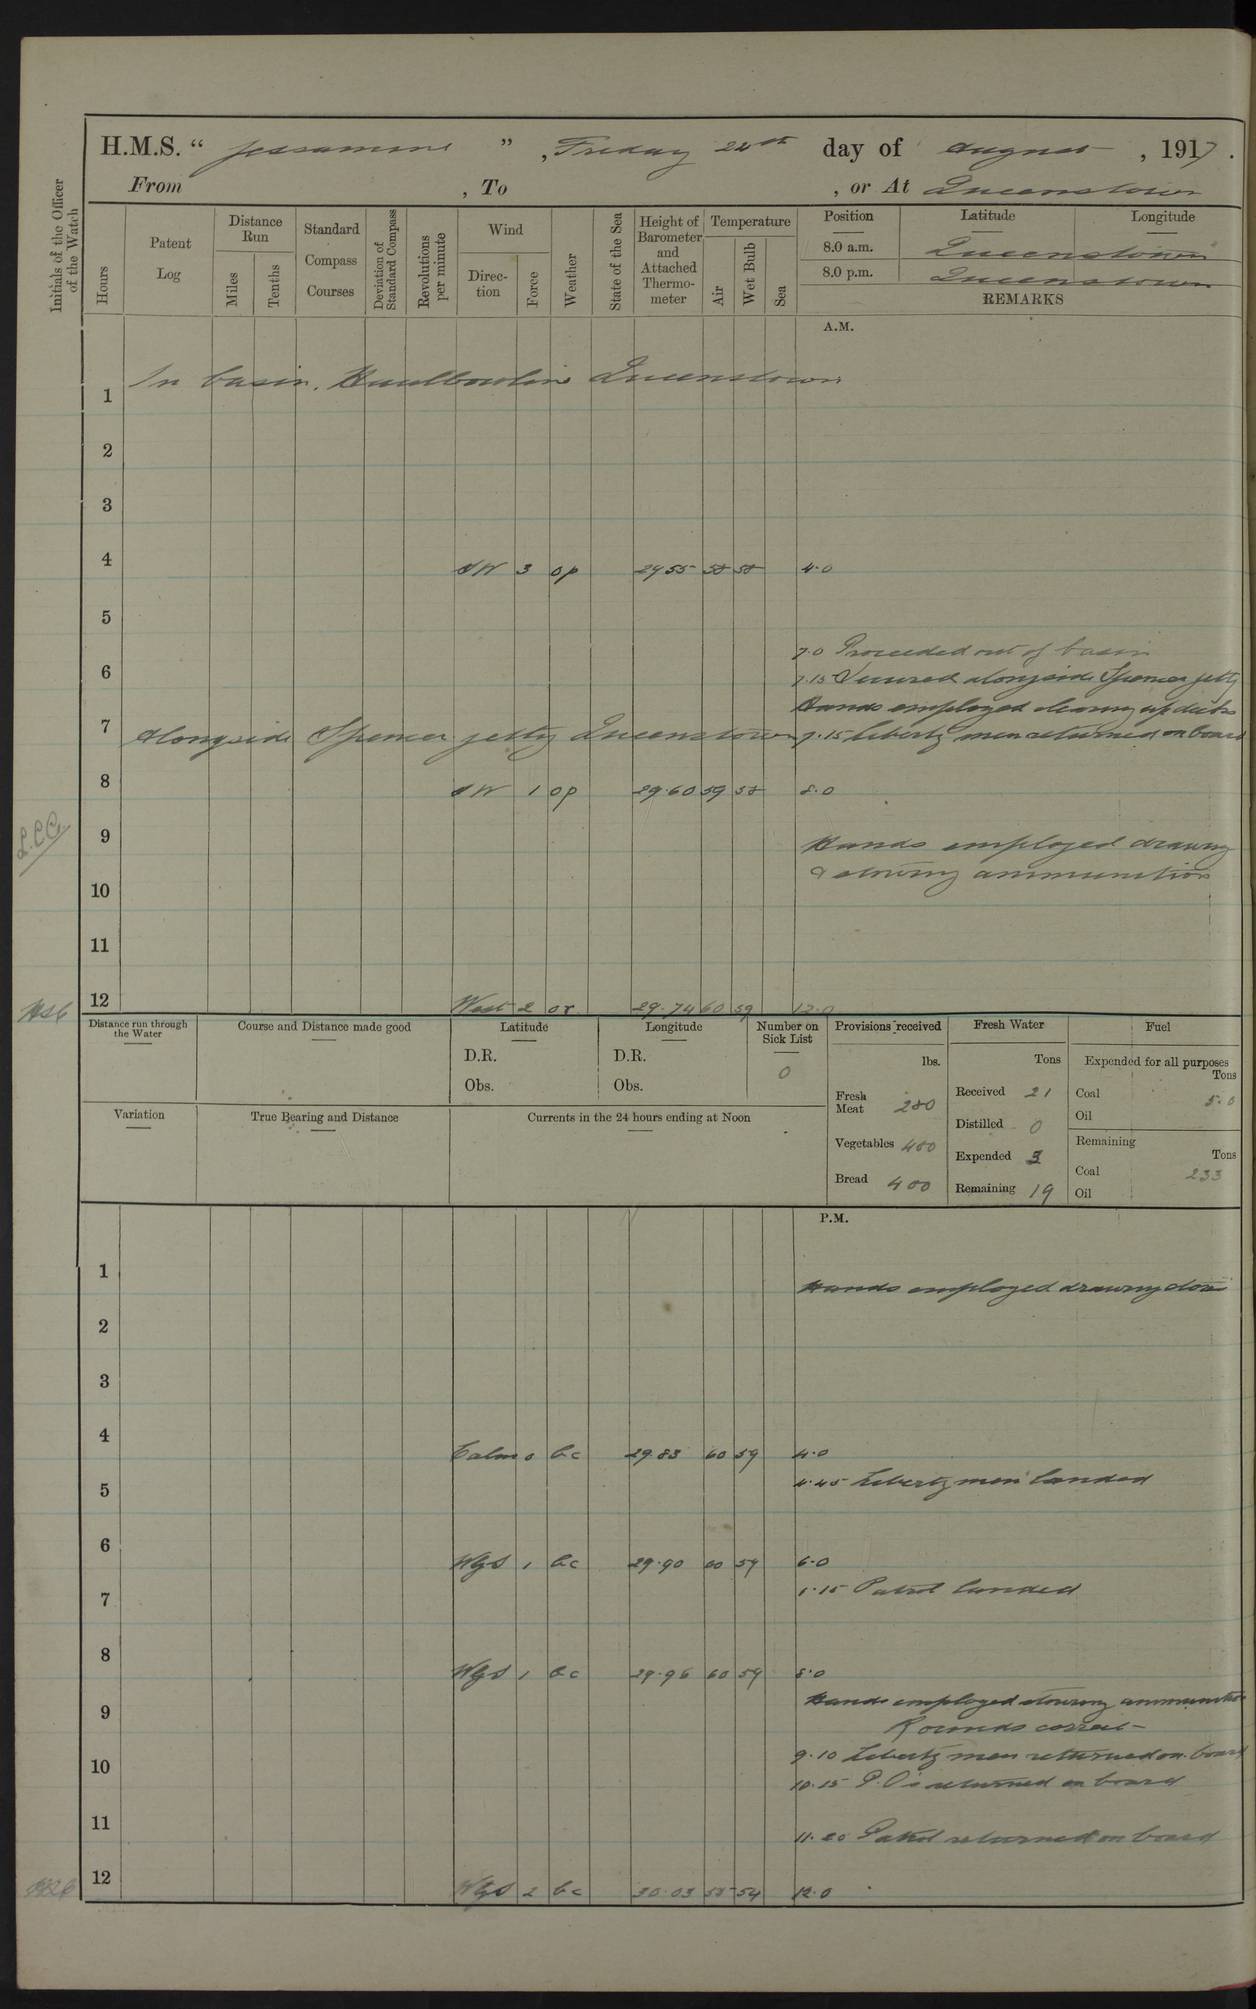 H.M.S. “ Jessamine ” , Friday 24th day of August , 1917 .
From , To , or At Queenstown
Initials of the Officer of the Watch
Hours
Patent Log
Distance Run
Miles
Tenths
Standard Compass Courses
Deviation of Standard Compass
Revolutions per minute
Wind
Direc- tion
Force
Weather
State of the Sea
Height of Barometer and Attached Thermo- meter
Temperature
Air
Wet Bulb
Sea
Position Latitude Longitude
8.0 a.m. Queenstown
8.0 p.m. Queenstown
REMARKS
A.M.
In basin. Haulbowline Queenstown
1
2
3
4 SW 3 op 29 55 58 58 4.0
5
7.0 Proceeded out of basin
6
7.15 Secured alongside Spencer jetty
Hands employed clearing up decks
7 Alongside Spencer jetty Queenstown 7.15 Liberty men returned on board
8 SW 1 op 29.60 59 58 8.0
L.C.C.
9 Hands employed drawing
& stowing ammunition
10
11
12 West 2 or 29.74 60 59 12.0
Distance run through the Water
Course and Distance made good
Latitude
D.R.
Obs.
Longitude
D.R.
Obs.
Number on Sick List
0
Variation
True Bearing and Distance
Currents in the 24 hours ending at Noon
Provisions received
lbs.
Fresh Meat 280
Vegetables 400
Bread 400
Fresh Water
Tons
Received 21
Distilled 0
Expended 3
Remaining 19
Fuel
Expended for all purposes
Tons
Coal 5.0
Oil
Remaining
Tons
Coal 233
Oil
P.M.
1 Hands employed drawing stores
2
3
4 Calm 0 bc 29.83 60 59 4.0
4.45 Liberty men landed
5
6 WyS 1 bc 29.90 60 59 6.0
7 Patrol landed
8 WyS 1 bc 29.96 60 59 8.0
9 Hands employed stowing ammunition
Rounds correct
9.10 Liberty men returned on board
10
10.15 P.O's returned on board
11
11.20 Patrol returned on board
12 WyS 2 bc 30.03 55 54 12.0